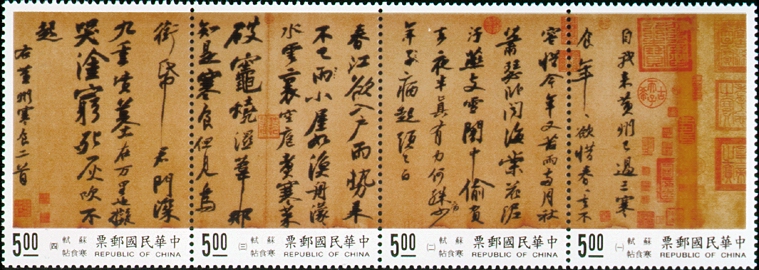 自我來黃州已過三寒
食年〻欲惜春〻去不
容惜今年又苦雨兩月秋
蕭瑟臥聞海棠花泥
汙燕支雪闇中偷負
去夜半真有力何殊病少
年子病起頭已白
春江欲入戶雨勢來
不已雨小屋如漁舟濛〻
水雲裏空庖煮寒菜
破竈燒濕葦那
知是寒食但見烏
銜帋君門深
九重墳墓在萬里也擬
哭塗窮死灰吹不
起
右黃州寒食二首
中華民國郵票
REPUBLIC OF CHINA
蘇軾寒食帖
(一)
5.00
中華民國郵票
REPUBLIC OF CHINA
蘇軾寒食帖
(二)
5.00
中華民國郵票
REPUBLIC OF CHINA
蘇軾寒食帖
(三)
5.00
中華民國郵票
REPUBLIC OF CHINA
蘇軾寒食帖
(四)
5.00